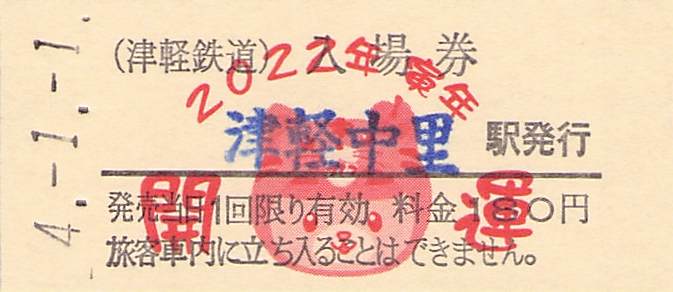 4.-1.-1.
(津軽鉄道) 入場券
2022年 寅年
津軽中里 駅発行
開運
発売当日1回限り有効 料金180円
旅客車内に立ち入ることはできません。